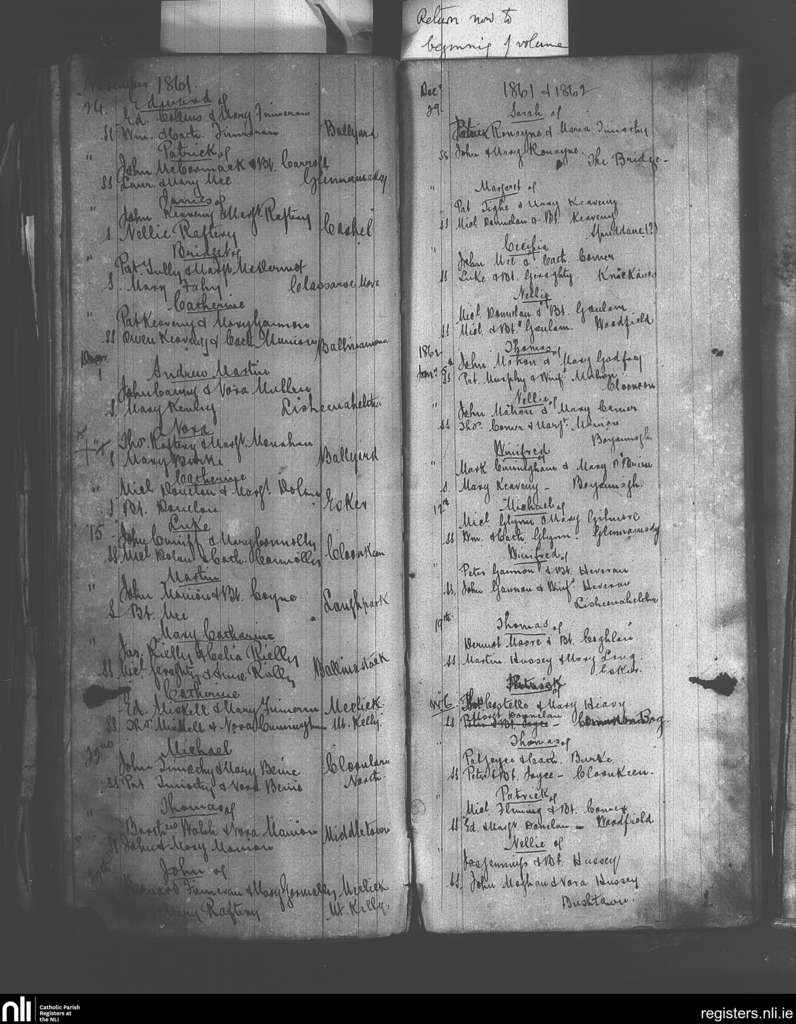 Return now to
beginning of volume
November 1861
24. Edward of
Ed. Collins & Mary Finneran
SS Wm. & Cath. Finneran Ballyard
" Patrick of
John McCormack & Bt. Carroll
SS Laur. & Mary Mee Glennamaddy
James of
John Keaveny & Margt. Raftery
S Nellie Raftery Cashel
" Bridget of
Pat. Tully & Margt. McDermot
S. Mary Fahy Classaroe More
" Catherine
Pat Keaveny & Mary Gannon
SS Owen Keaveny & Cath. Manion Ballinamona
Decr.
1 Andrew Martin
John Canny & Nora Mullen
S Mary Keaveny Lisheenaheltia
" Nora
Thos. Raftery & Margt. Monahan
S Mary Burke Ballyard
" Catherine
Micl Donelan & Margt. Dolan
S Bt. Donelan Esker
15 Luke
John Cunniff & Mary Connolly
SS Micl Dolan & Cath. Connolly Cloonkeen
" Martin
John Manion & Bt. Coyne
S Bt. Mee Loughpark
" Mary Catharine
Jas. Kielly & Celia Kielly
SS Micl Geraghty & Anne Kielly Ballinastack
" Catherine
Ed. Miskell & Mary Finneran Meelick
SS Thos. Miskell & Nora Cunningham Mt. Kelly.
22nd Michael
John Timothy & Mary Beirne Cloonlara
SS Pat Timothy & Nora Beirne North
" Thomas of
Barthw Walsh & Nora Manion Middletown
John & Mary Manion
John of
Bernard Finneran & Mary Gormally Meelick
Mary Raftery Mt. Kelly.
Decr. 1861 & 1862
29. Sarah of
Patrick Ronayne & Maria Timothy
SS John & Mary Ronayne. The Bridge -
" Margaret of
Pat Tighe & Mary Keaveny
SS Micl Donnelan & Bt. Keaveny
Spuddane (?)
" Cecilia
John Mee & Cath. Comer
SS Luke & Bt. Geraghty Knockaves
" Nellie
Micl. Donnelan & Bt. Gaulam
SS Micl & Bt. Gaulam. Woodfield
1862
Jany. 5 Thomas of
John Mohan & Mary Godfrey
SS Pat. Murphy & Winfd. Mahon
Clooncon
" Nellie of
John Mahon & Mary Comer
SS Thos. Comer & Margt. Manion
Boyannagh
" Winifred
Mark Cunningham & Mary
S. Mary Keaveny - Boyannagh
12th Michael of
Micl Glynn & Mary Gilmore
SS Wm. & Cath. Glynn - Glennamady
" Winifred of
Peter Gannon & Bt. Heveran
SS. John Gannon & Winfd Heveran
Lisheenaheltia
19th Thomas of
Dermot Moore & Bt. Coghlan
SS Martin Hussey & Mary Long
Esker
Patrick
Costello & Mary Heavy
Margt. Donnelan
SS
" Thomas of
Pat Joyce & Cath. Burke
SS Peter & Bt. Joyce - Cloonkeen.
" Patrick of
Micl Fleming & Bt. Comer
SS Ed. & Margt. Donelan - Woodfield
" Nellie of
Jas Jennings & Bt. Hussey
SS. John Moghan & Nora Hussey
Bushtown.
nli
Catholic Parish
Registers at
the NLI
registers.nli.ie